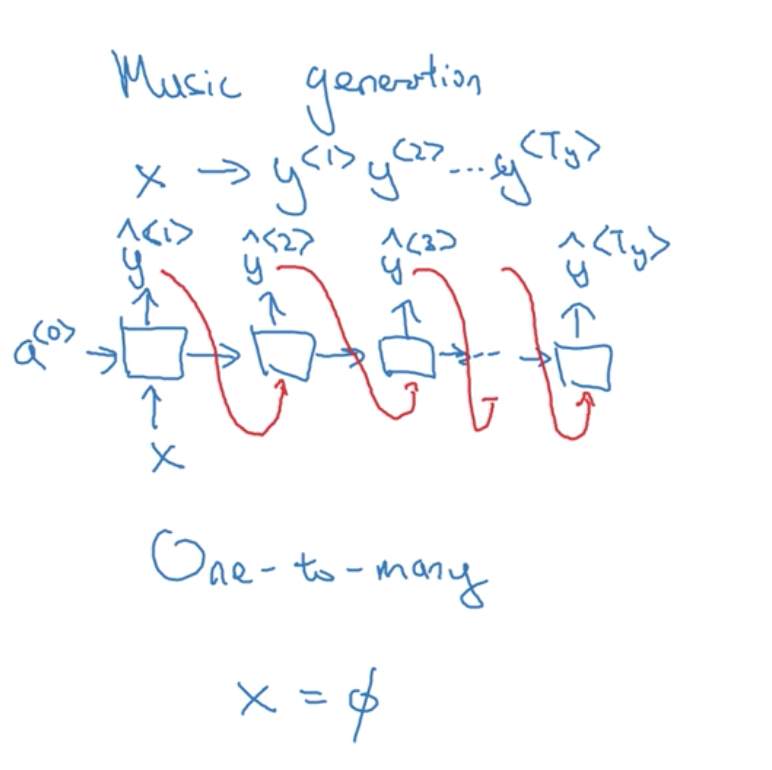 Music generation
x → y<1> y<2> ... y<Ty>
ŷ<1> ŷ<2> ŷ<3> ŷ<Ty>
a<0>
x
One-to-many
x = φ